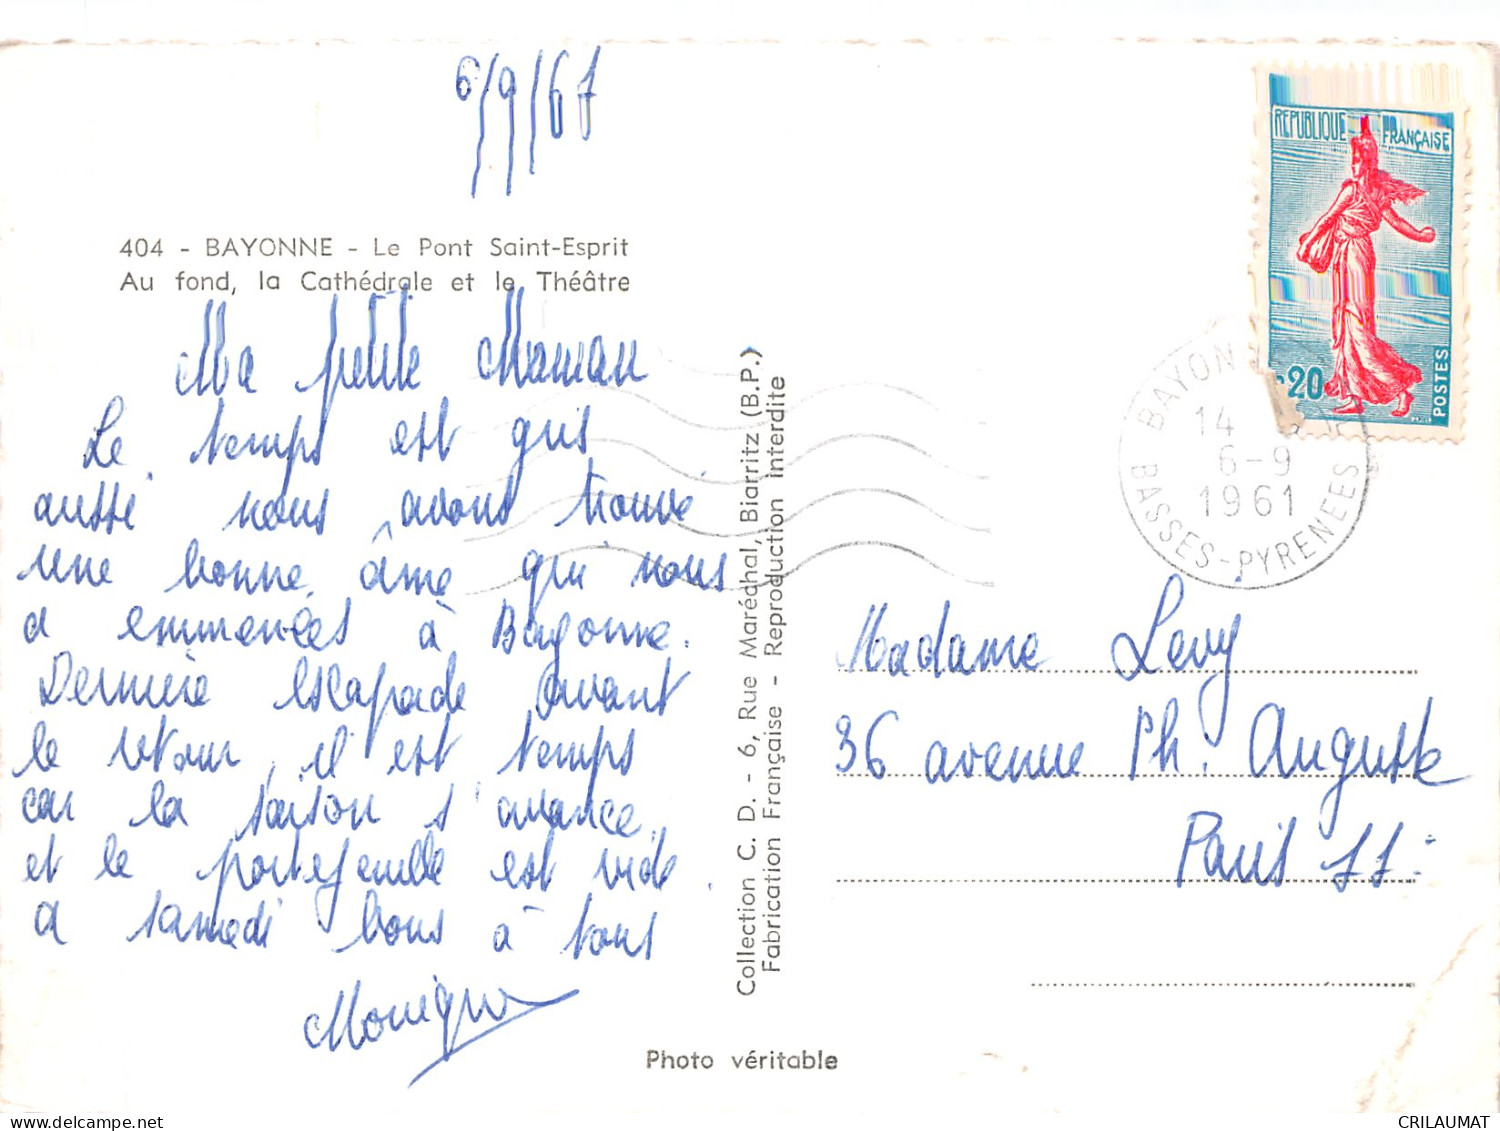 6/9/61
404 - BAYONNE - Le Pont Saint-Esprit
Au fond, la Cathédrale et le Théâtre
Ma petite Maman
Le temps est gris
aussi nous avons trouvé
une bonne âme qui nous
a emmenées à Bayonne.
Dernière escapade avant
le retour, il est temps
car la saison s'avance,
et le portefeuille est vide.
A samedi bons à tous
Monique
Collection C. D. - 6, Rue Maréchal, Biarritz (B.P.)
Fabrication Française - Reproduction interdite
Photo véritable
REPUBLIQUE FRANÇAISE
20
POSTES
BAYON
14
6-9
1961
BASSES-PYRENEES
Madame Levy
36 avenue Ph. Auguste
Paris 11.
CRILAUMAT